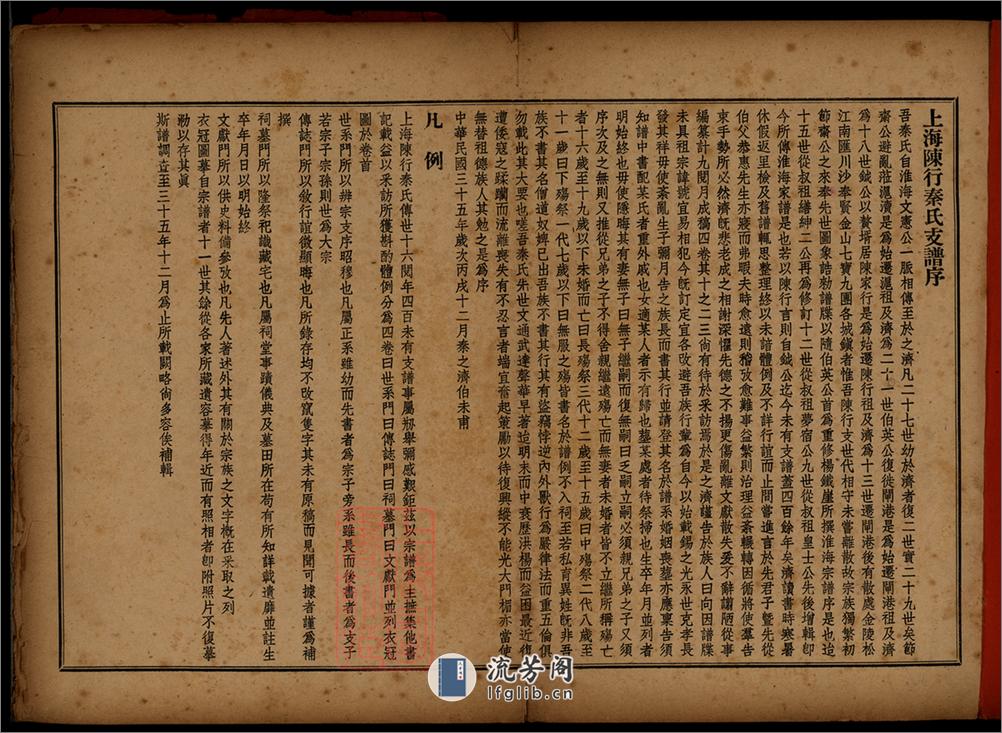 上海陳行秦氏支譜序
吾秦氏自淮海文憲公一脈相傳至於之濟凡二十七世幼於濟者復二世實二十九世矣節
齋公避亂蒞滬瀆是為始遷滬祖及濟為二十一世伯英公復徙閘港是為始遷閘港祖及濟
為十八世鉞公以贅壻居陳家行是為始遷陳行祖及濟為十三世遷閘港後有散處金陵松
江南匯川沙奉賢金山七寶九團各城鎮者惟吾陳行支世代相守未嘗離散故宗族獨繁初
節齋公之來奉先世圖象誥勅譜牒以隨伯英公首為重修楊鐵崖所撰淮海宗譜序是也迨
十五世從叔祖繕紳二公再為修訂十二世從叔祖夢宿公九世從叔祖皇士公先後增輯卽
今所傳淮海家譜是也若以陳行言則自鉞公迄今未有支譜蓋四百餘年矣濟讀書時寒暑
休假返里檢及舊譜輒思整理終以未諳體例及不詳行誼而止間嘗進言於先君子曁先從
伯父恭惠先生亦寢而弗暇夫時愈遠則稽攷愈難事益繁則治理益紊輾轉因循將使羣告
束手勢所必然濟旣悲老成之相謝深懼先德之不揚更傷亂離文獻散失爰不辭譾陋從事
編纂計九閱月成稿四卷其十之二三尙有待於釆訪焉於是之濟謹告於族人曰向因譜牒
未具祖宗諱號宜易相犯今旣訂定宜各改避吾族行輩為自今以始載錫之光永世克孝長
發其祥毋使紊亂生子彌月必先告之族長而書其行並請登其名於譜系婚姻喪葬亦應稟告須
知譜中書配某氏者重外戚也女適某人者示有歸也墓某處者待祭掃也生卒年月並列者
明始終也毋使隱晦其有妻無子曰無子繼嗣而復無嗣曰乏嗣立嗣必須親兄弟之子又須
序次及之無則又推從兄弟之子不得舍親繼遠殤亡而無妻者未婚者皆不立繼所稱殤亡
者十六歲以上至十九歲以下未婚而亡曰長殤祭三代十二歲至十五歲曰中殤祭二代八歲至
十一歲曰下殤祭一代七歲以下曰無服之殤皆書名於譜例不入祠至若私育異姓旣非吾
族不書其名僧道奴婢已出吾族不書其行其有盜竊悖逆內外獸行為嚴律法而重五倫俱
勿載此其大要也嗟吾秦氏先世文通武達聲華早著迨明末而中衰歷洪楊而益困最近復
遭倭寇之蹂躪而流離喪失有不忍言者端宜奮起策勵以待復興縱不能光大門楣亦當使
無替祖德族人其勉之是為序
中華民國三十五年歲次丙戌十二月秦之濟伯未甫
凡例
上海陳行秦氏傳世十六閱年四百未有支譜事屬剏舉彌感艱鉅茲以宗譜為主摭集他書
記載益以釆訪所獲斟酌體例分為四卷曰世系門曰傳誌門曰祠墓門曰文獻門並列衣冠
圖於卷首
世系門所以辨宗支序昭穆也凡屬正系雖幼而先書者為宗子旁系雖長而後書者為支子
若宗子宗孫則世為大宗
傳誌門所以敘行誼微顯晦也凡所錄存均不攺竄隻字其未有原稿而見聞可據者謹為補
撰
祠墓門所以隆祭祀識藏宅也凡屬祠堂事蹟儀典及墓田所在苟有所知詳載遺靡並註生
卒年月日以明始終
文獻門所以供史料備參攷也凡先人著述外其有關於宗族之文字槪在采取之列
衣冠圖摹自宗譜者十一世其餘從各家所藏遺容摹得年近而有照相者卽附照片不復摹
勒以存其眞
斯譜調查至三十五年十二月為止所載闕略尙多容俟補輯
流芳阁
lfglib.cn